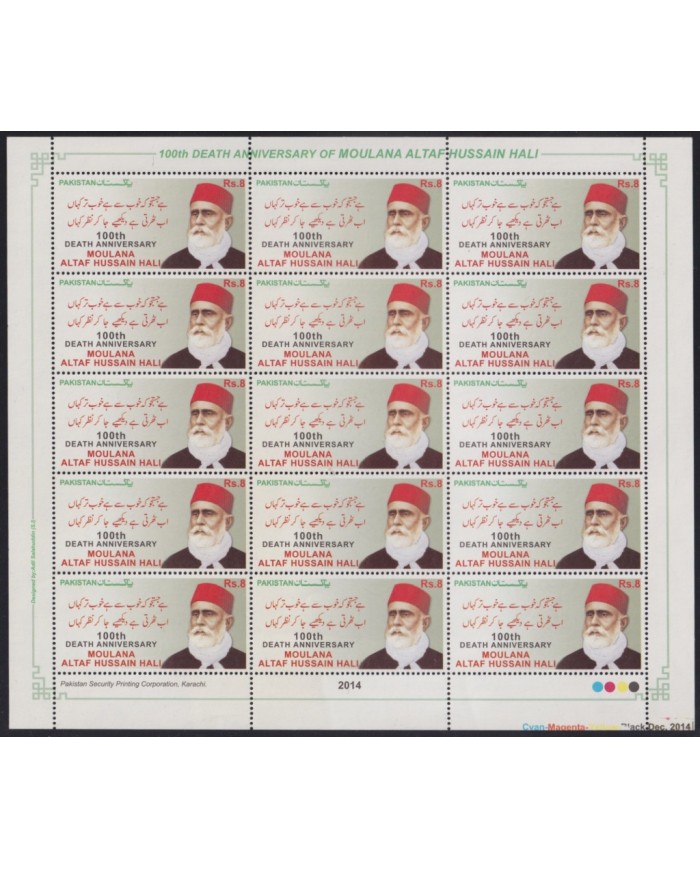 100th DEATH ANNIVERSARY OF MOULANA ALTAF HUSSAIN HALI
PAKISTAN پاکستان Rs.8
ہے جستجو کہ خوب سے ہے خوب تر کہاں
اب ٹھہرتی ہے دیکھیے جا کر نظر کہاں
100th
DEATH ANNIVERSARY
MOULANA
ALTAF HUSSAIN HALI
PAKISTAN پاکستان Rs.8
ہے جستجو کہ خوب سے ہے خوب تر کہاں
اب ٹھہرتی ہے دیکھیے جا کر نظر کہاں
100th
DEATH ANNIVERSARY
MOULANA
ALTAF HUSSAIN HALI
PAKISTAN پاکستان Rs.8
ہے جستجو کہ خوب سے ہے خوب تر کہاں
اب ٹھہرتی ہے دیکھیے جا کر نظر کہاں
100th
DEATH ANNIVERSARY
MOULANA
ALTAF HUSSAIN HALI
PAKISTAN پاکستان Rs.8
ہے جستجو کہ خوب سے ہے خوب تر کہاں
اب ٹھہرتی ہے دیکھیے جا کر نظر کہاں
100th
DEATH ANNIVERSARY
MOULANA
ALTAF HUSSAIN HALI
PAKISTAN پاکستان Rs.8
ہے جستجو کہ خوب سے ہے خوب تر کہاں
اب ٹھہرتی ہے دیکھیے جا کر نظر کہاں
100th
DEATH ANNIVERSARY
MOULANA
ALTAF HUSSAIN HALI
PAKISTAN پاکستان Rs.8
ہے جستجو کہ خوب سے ہے خوب تر کہاں
اب ٹھہرتی ہے دیکھیے جا کر نظر کہاں
100th
DEATH ANNIVERSARY
MOULANA
ALTAF HUSSAIN HALI
PAKISTAN پاکستان Rs.8
ہے جستجو کہ خوب سے ہے خوب تر کہاں
اب ٹھہرتی ہے دیکھیے جا کر نظر کہاں
100th
DEATH ANNIVERSARY
MOULANA
ALTAF HUSSAIN HALI
PAKISTAN پاکستان Rs.8
ہے جستجو کہ خوب سے ہے خوب تر کہاں
اب ٹھہرتی ہے دیکھیے جا کر نظر کہاں
100th
DEATH ANNIVERSARY
MOULANA
ALTAF HUSSAIN HALI
PAKISTAN پاکستان Rs.8
ہے جستجو کہ خوب سے ہے خوب تر کہاں
اب ٹھہرتی ہے دیکھیے جا کر نظر کہاں
100th
DEATH ANNIVERSARY
MOULANA
ALTAF HUSSAIN HALI
PAKISTAN پاکستان Rs.8
ہے جستجو کہ خوب سے ہے خوب تر کہاں
اب ٹھہرتی ہے دیکھیے جا کر نظر کہاں
100th
DEATH ANNIVERSARY
MOULANA
ALTAF HUSSAIN HALI
PAKISTAN پاکستان Rs.8
ہے جستجو کہ خوب سے ہے خوب تر کہاں
اب ٹھہرتی ہے دیکھیے جا کر نظر کہاں
100th
DEATH ANNIVERSARY
MOULANA
ALTAF HUSSAIN HALI
PAKISTAN پاکستان Rs.8
ہے جستجو کہ خوب سے ہے خوب تر کہاں
اب ٹھہرتی ہے دیکھیے جا کر نظر کہاں
100th
DEATH ANNIVERSARY
MOULANA
ALTAF HUSSAIN HALI
PAKISTAN پاکستان Rs.8
ہے جستجو کہ خوب سے ہے خوب تر کہاں
اب ٹھہرتی ہے دیکھیے جا کر نظر کہاں
100th
DEATH ANNIVERSARY
MOULANA
ALTAF HUSSAIN HALI
PAKISTAN پاکستان Rs.8
ہے جستجو کہ خوب سے ہے خوب تر کہاں
اب ٹھہرتی ہے دیکھیے جا کر نظر کہاں
100th
DEATH ANNIVERSARY
MOULANA
ALTAF HUSSAIN HALI
PAKISTAN پاکستان Rs.8
ہے جستجو کہ خوب سے ہے خوب تر کہاں
اب ٹھہرتی ہے دیکھیے جا کر نظر کہاں
100th
DEATH ANNIVERSARY
MOULANA
ALTAF HUSSAIN HALI
Designed by Adil Salahuddin (S.I)
Pakistan Security Printing Corporation, Karachi.
2014
Cyan-Magenta-Yellow-Black Dec. 2014